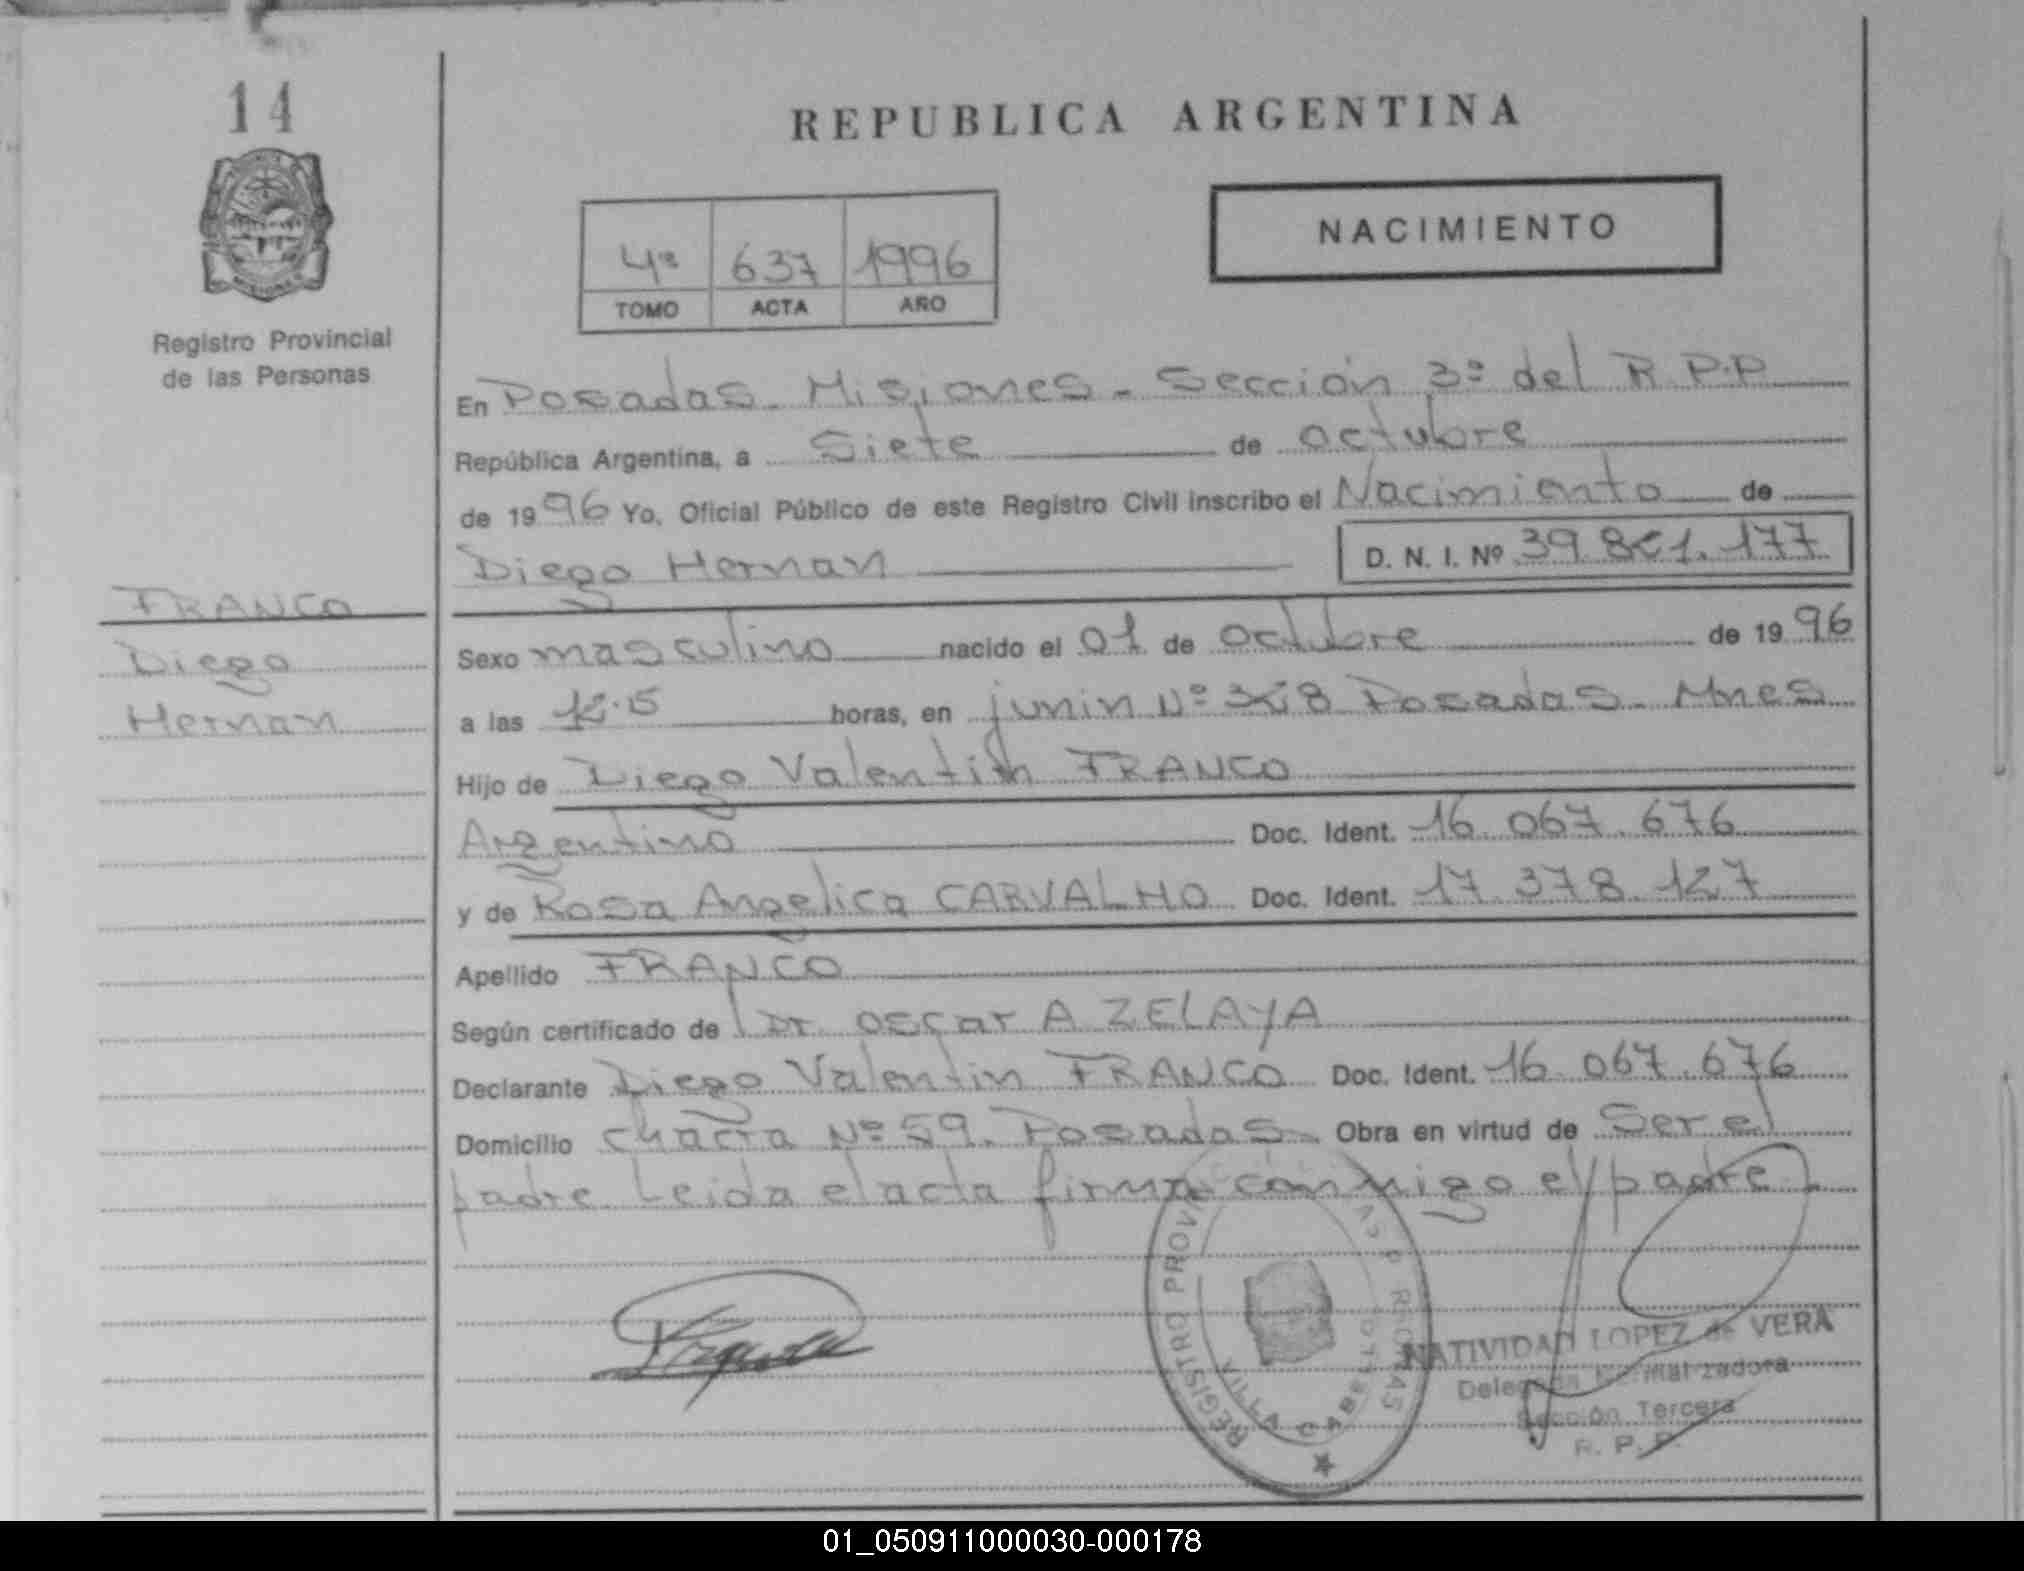 14
REPUBLICA ARGENTINA
NACIMIENTO
4º 637 1996
TOMO ACTA AÑO
Registro Provincial
de las Personas
En Posadas - Misiones - Sección 3º del R.P.P
República Argentina, a Siete de octubre
de 1996 Yo, Oficial Público de este Registro Civil inscribo el Nacimiento de
Diego Hernan D. N. I. Nº
FRANCO
Diego
Hernan
Sexo masculino nacido el 01 de octubre de 1996
a las horas, en junin Nº Posadas - Mnes
Hijo de Diego Valentin FRANCO
Argentino Doc. Ident. 16.067.676
y de Rosa Angelica CARVALHO Doc. Ident. 17.378.127
Apellido FRANCO
Según certificado de Dr. oscar A ZELAYA
Declarante Diego Valentin FRANCO Doc. Ident. 16.067.676
Domicilio chacra Nº 59. Posadas - Obra en virtud de Ser el
padre. Leida el acta firma conmigo el padre.
REGISTRO PROVIN
NATIVIDAD LOPEZ de VERA
Delegada Normalizadora
Sección Tercera
R. P. P.
01_050911000030-000178